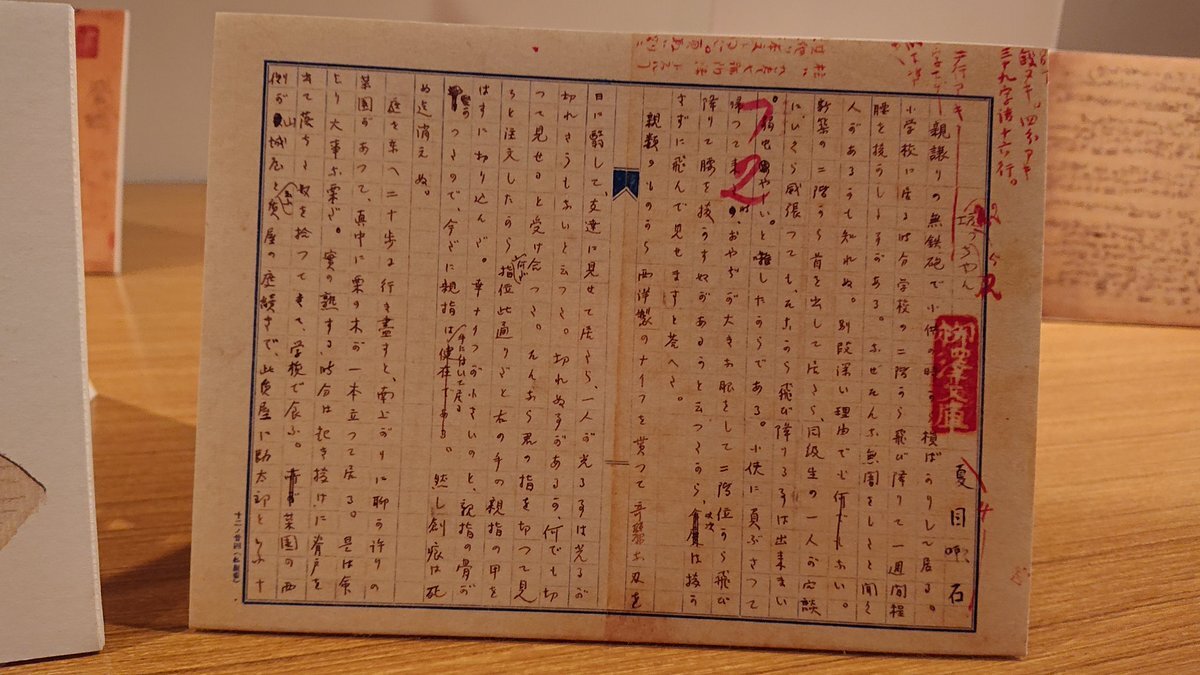 三九字詰十六行。
二行アキ
坊っちやん
夏目漱石
親譲りの無鉄砲で小供の時から損ばかりして居る。
小学校に居る時分学校の二階から飛び降りて一週間程
腰を抜かした事がある。なぜそんな無闇をしたと聞く
人があるかも知れぬ。別段深い理由でも何でもない。
新築の二階から首を出して居たら、同級生の一人が冗談
に、いくら威張つても、そこから飛び降りる事は出来まい
。弱虫やーい。と囃したからである。小使に負ぶさつて
帰つて来た時、おやぢが大きな眼をして二階位から飛び
降りて腰を抜かす奴があるかと云つたから、此次は抜か
さずに飛んで見せますと答へた。
72
親類のものから西洋製のナイフを貰つて奇麗な刃を
日に翳して、友達に見せて居たら、一人が光る事は光るが
切れさうもないと云つた。切れぬ事があるか、何でも切
つて見せると受け合つた。そんなら君の指を切つて見
ろと注文したから何だ指位此通りだと右の手の親指の甲を
はすに切り込んだ。幸ナイフが小さいのと、親指の骨が
堅かつたので、今だに親指は手に付いて居る。然し創痕は死
ぬ迄消えぬ。
庭を東へ二十歩に行き尽すと、南上がりに聊か許りの
菜園があつて、真中に栗の木が一本立つて居る。是は命
より大事な栗だ。実の熟する時分は起き抜けに脊戸を
出て落ちた奴を拾つてきて、学校で食ふ。菜園の西
側が山城屋と云ふ質屋の庭続きで、此質屋に勘太郎といふ十